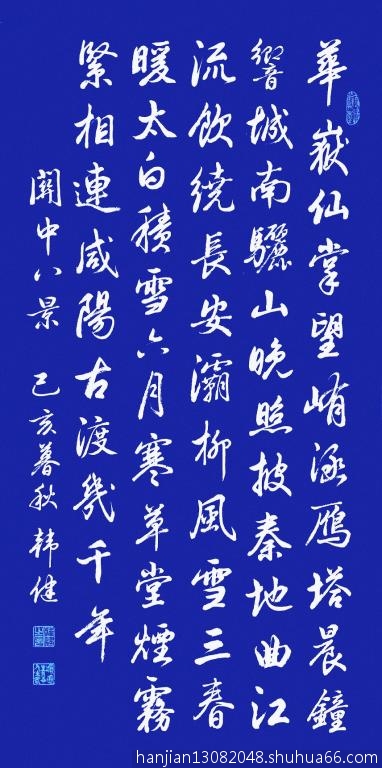 華嶽仙掌望崤涵雁塔晨鐘
響城南驪山晚照披秦地曲江
流飲繞長安灞柳風雪三春
暖太白積雪六月寒草堂煙霧
緊相連咸陽古渡幾千年
關中八景 己亥暮秋 韩健
hanjian13082048.shuhua66.com